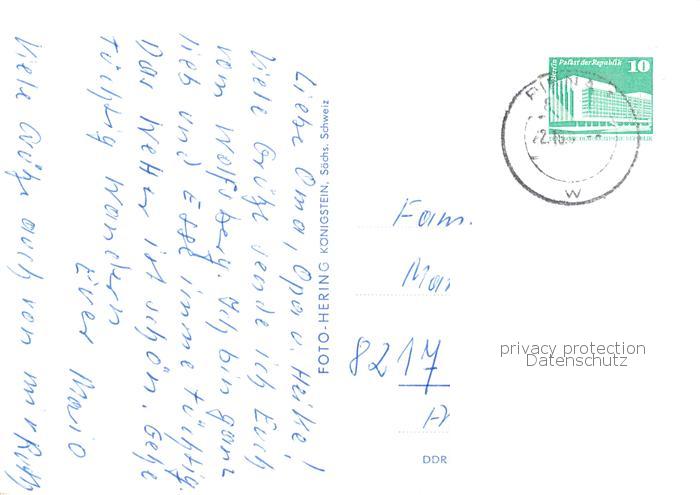 Liebe Oma, Opa u. Heike!
Viele Grüße sende ich Euch
vom Wolfsberg. Ich bin ganz
lieb und Esse imme tüchtig.
Das Wetter ist schön. Gehe
tüchtig wandern
Euer Mario
Viele Grüße auch von
FOTO-HERING KÖNIGSTEIN, Sächs. Schweiz
Berlin Palast der Republik 10
DEUTSCHE DEMOKRATISCHE REPUBLIK
w
Fam.
Mar
8217
privacy protection
Datenschutz
DDR